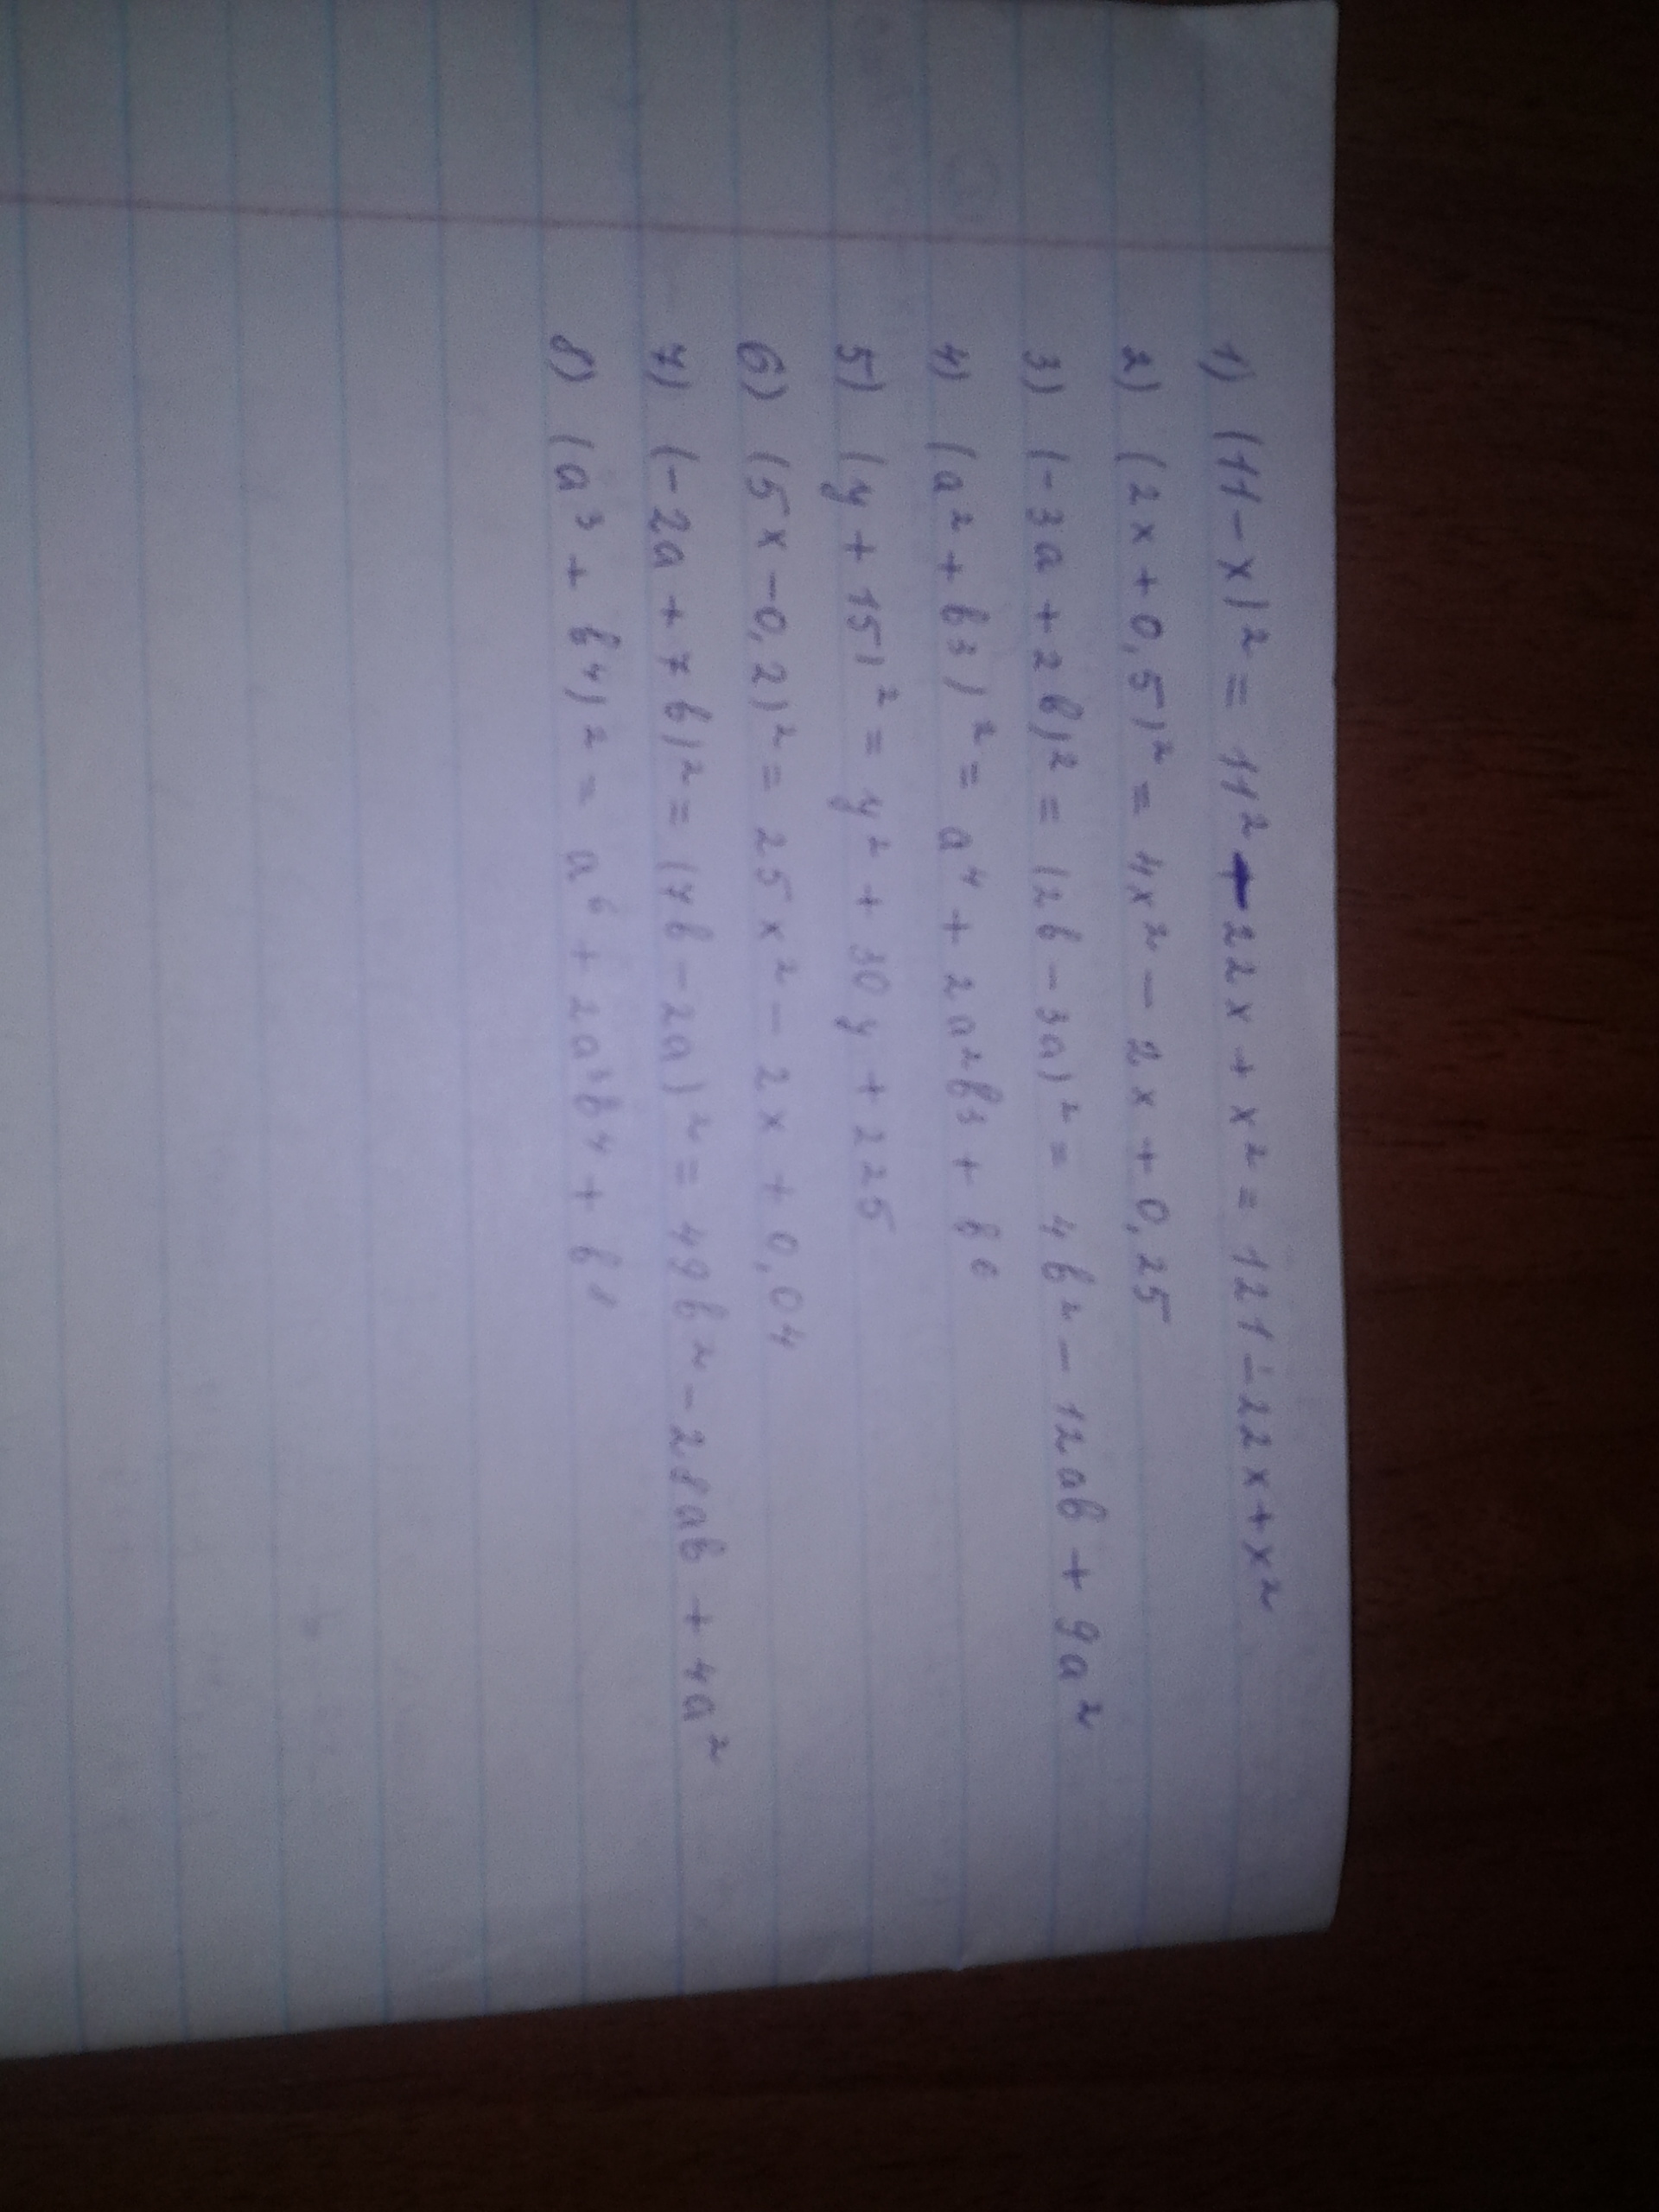 1) (11-x)² = 11² - 22x + x² = 121 - 22x + x²
2) (2x + 0,5)² = 4x² - 2x + 0,25
3) (-3a + 2b)² = (2b - 3a)² = 4b² - 12ab + 9a²
4) (a² + b³)² = a⁴ + 2a²b³ + b⁶
5) (y + 15)² = y² + 30y + 225
6) (5x - 0,2)² = 25x² - 2x + 0,04
7) (-2a + 7b)² = (7b - 2a)² = 49b² - 28ab + 4a²
8) (a³ + b⁴)² = a⁶ + 2a³b⁴ + b⁸